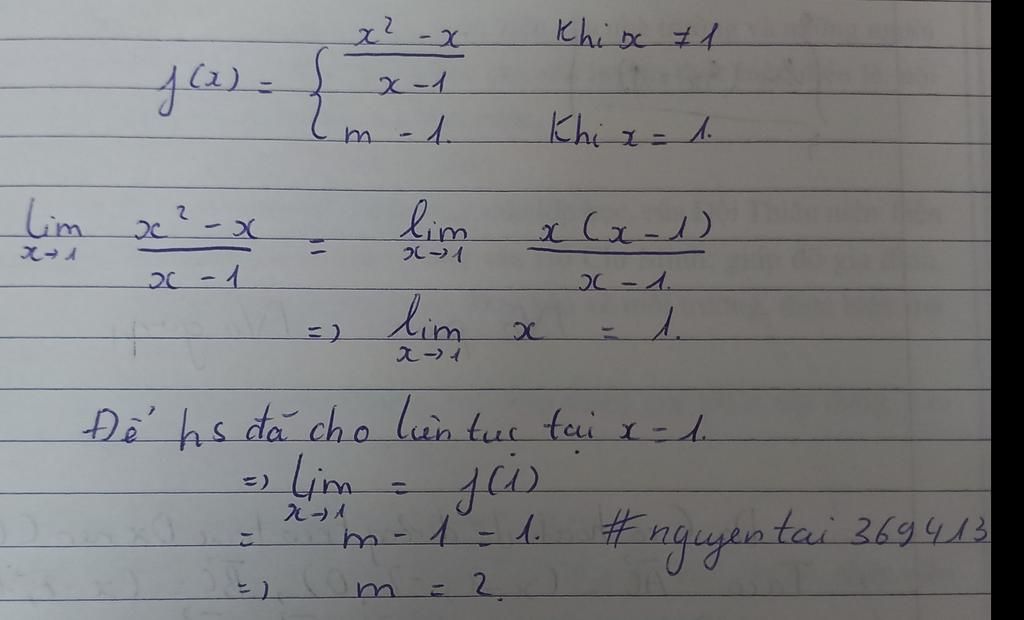 f(x) = { (x² - x)/(x - 1) Khi x ≠ 1
m - 1. Khi x = 1.
lim x→1 (x² - x)/(x - 1) = lim x→1 x(x - 1)/(x - 1.)
=> lim x→1 x = 1.
Để hs đã cho liên tục tại x = 1.
=> lim x→1 = f(1)
= m - 1 = 1. #nguyentai369413
=> m = 2.